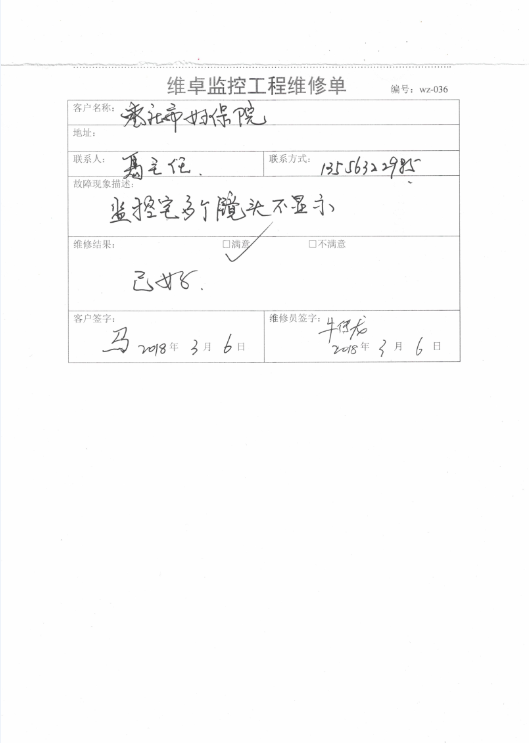 维卓监控工程维修单
编号：wz-036
客户名称： 枣庄市妇保院
地址：
联系人： 马主任.
联系方式： 13556322985
故障现象描述：
监控室多个镜头不显示
维修结果： □满意 □不满意
已好.
客户签字：
马 2018年3月6日
维修员签字：
2018年3月6日